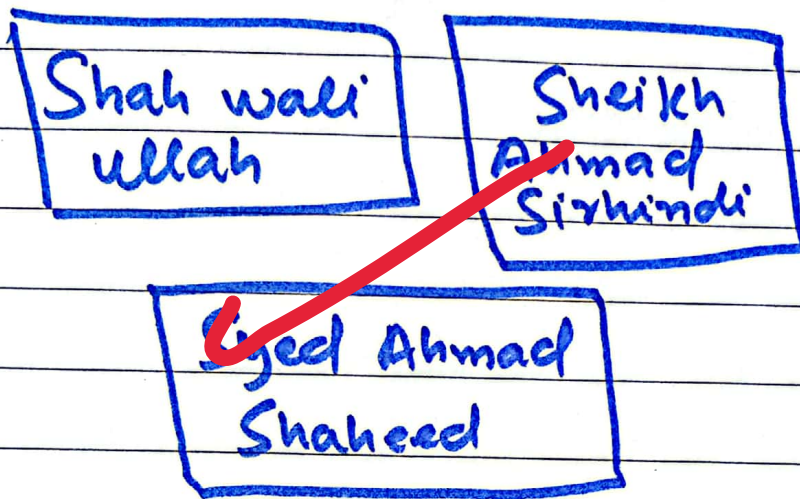 Shah wali
ullah
Sheikh
Ahmad
Sirhindi
Syed Ahmad
Shaheed